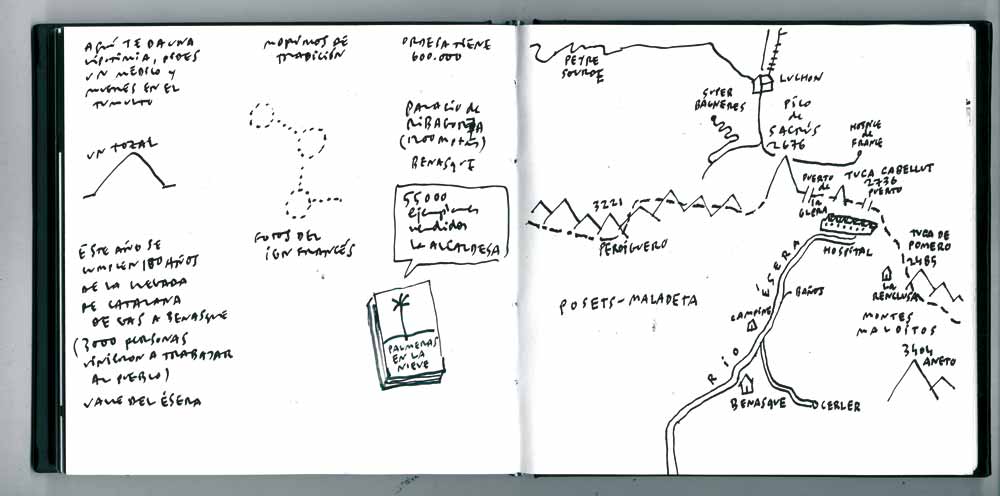 AQUÍ TE DA UNA
LIPOTIMIA, PIDES
UN MÉDICO Y
MUERES EN EL
TUMULTO
UN TOZAL
ESTE AÑO SE
CUMPLEN 180 AÑOS
DE LA LLEGADA
DE CATALANA
DE GAS A BENASQUE
(3000 PERSONAS
VINIERON A TRABAJAR
AL PUEBLO)
VALLE DEL ÉSERA
MORIMOS DE
TRADICIÓN
FOTOS DEL
IGN FRANCÉS
ORDESA TIENE
600.000
PALACIO de
RIBAGORZA
(1200
BENASQUE
55000
ejemplares
vendidos
LA ALCALDESA
PALMERAS
EN LA
NIEVE
PEYRE
SOURDE
LUCHON
SUPER
BAGNERES
PICO
de
SACRÚS
2676
HOSPICE
de
FRANCE
TUCA CABELLUT
2736
PUERTO
de
la
GLERA
PUERTO
3221
PERDIGUERO
HOSPITAL
TUCA DE
POMERO
2485
LA
RENCLUSA
MONTES
MALDITOS
3404
ANETO
POSETS-MALADETA
RÍO ÉSERA
BAÑOS
CAMPING
BENASQUE
CERLER